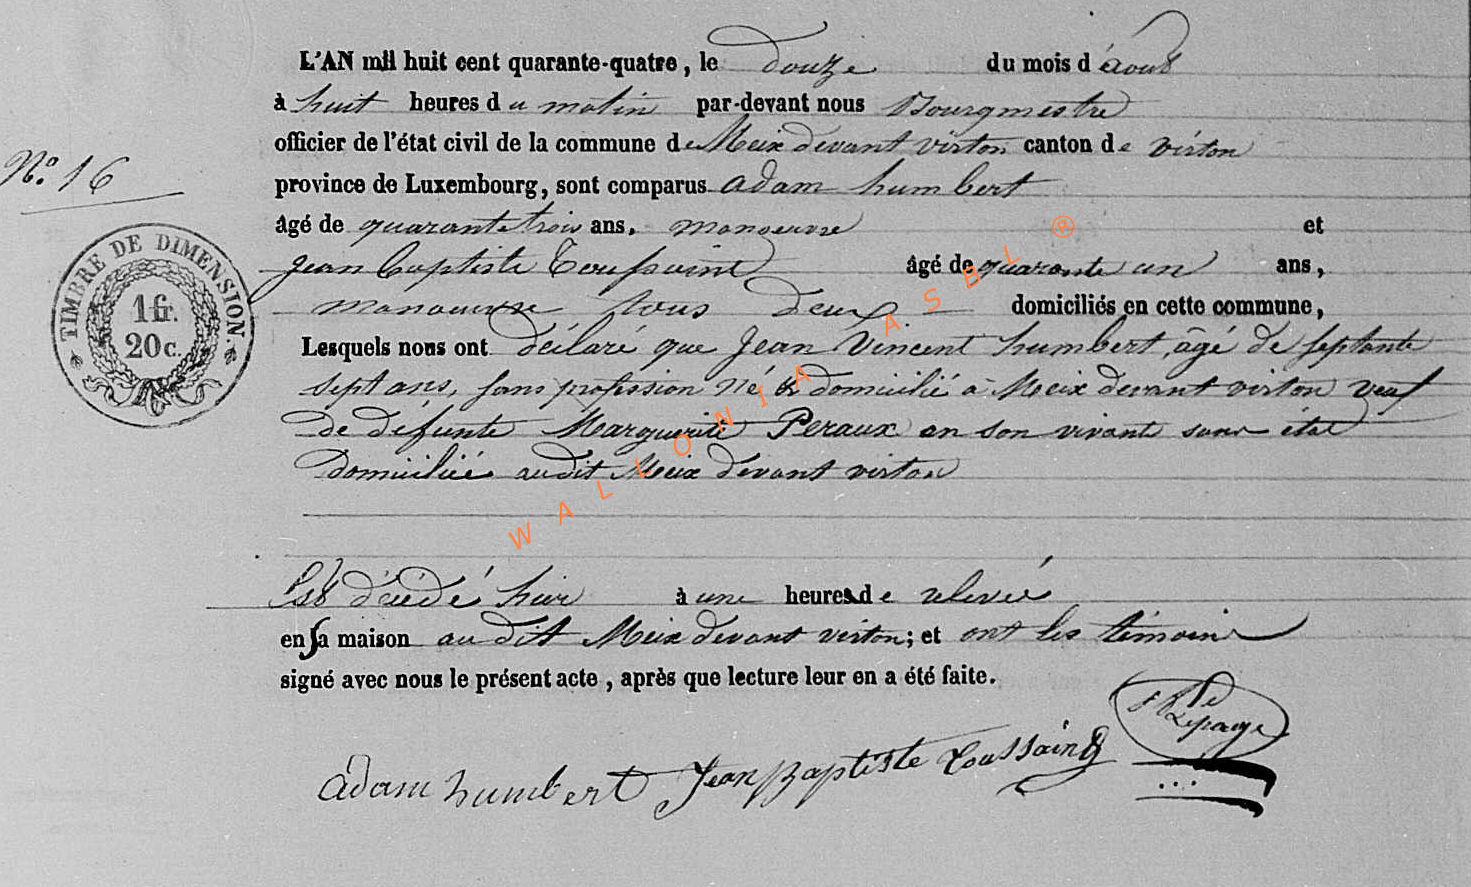 L'AN mil huit cent quarante-quatre, le douze du mois d'août
à huit heures du matin par-devant nous Bourgmestre
officier de l'état civil de la commune de Meix devant virton canton de virton
N° 16
province de Luxembourg, sont comparus adam humbert
âgé de quarante trois ans, manoeuvre et
jean baptiste Toussaint âgé de quarante un ans,
manoeuvre tous deux domiciliés en cette commune,
TIMBRE DE DIMENSION.
1 fr.
20 c.
Lesquels nous ont déclaré que Jean Vincent humbert, âgé de septante
sept ans, sans profession né et domicilié à Meix devant virton veuf
de défunte Marguerite Peraux en son vivante sans état
Domiciliée audit Meix devant virton
Est décédé hier à une heure de relevée
en sa maison au dit Meix devant virton; et ont les témoins
signé avec nous le présent acte, après que lecture leur en a été faite.
Lepage
adam humbert Jean Baptiste Toussaint
WALLONIA ASBL ®